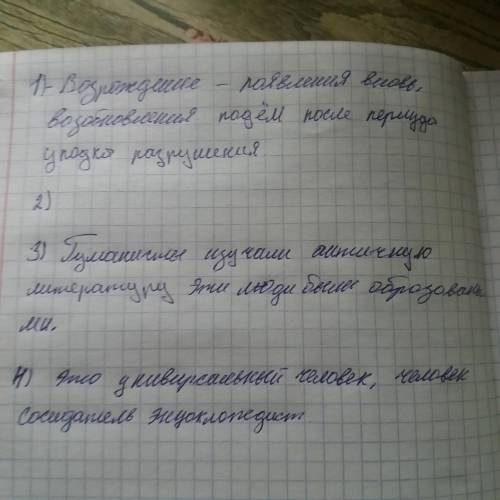 1) - Возрождение - появления вновь,
возобновления подём после периуда
упадка разрушения.
2)
3) Гуманисты изучали античную
литературу эти люди были образованы
ми.
4) это универсальный человек, человек
Сосидатель энцоклопедист.